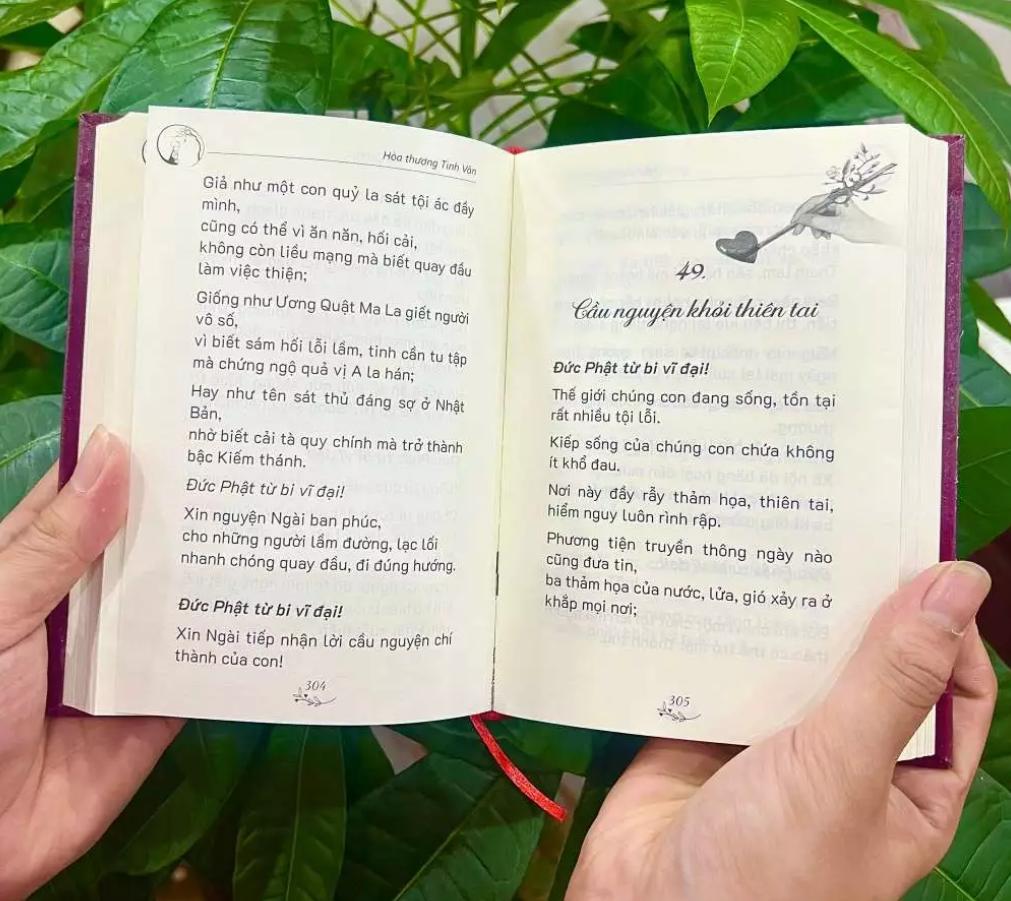 Hòa thượng Tinh Vân
Giả như một con quỷ la sát tội ác đầy
mình,
cũng có thể vì ăn năn, hối cải,
không còn liều mạng mà biết quay đầu
làm việc thiện;
Giống như Ương Quật Ma La giết người
vô số,
vì biết sám hối lỗi lầm, tinh cần tu tập
mà chứng ngộ quả vị A la hán;
Hay như tên sát thủ đáng sợ ở Nhật
Bản,
nhờ biết cải tà quy chính mà trở thành
bậc Kiếm thánh.
Đức Phật từ bi vĩ đại!
Xin nguyện Ngài ban phúc,
cho những người lầm đường, lạc lối
nhanh chóng quay đầu, đi đúng hướng.
Đức Phật từ bi vĩ đại!
Xin Ngài tiếp nhận lời cầu nguyện chí
thành của con!
304
49.
Cầu nguyện khỏi thiên tai
Đức Phật từ bi vĩ đại!
Thế giới chúng con đang sống, tồn tại
rất nhiều tội lỗi.
Kiếp sống của chúng con chứa không
ít khổ đau.
Nơi này đầy rẫy thảm họa, thiên tai,
hiểm nguy luôn rình rập.
Phương tiện truyền thông ngày nào
cũng đưa tin,
ba thảm họa của nước, lửa, gió xảy ra ở
khắp mọi nơi;
305